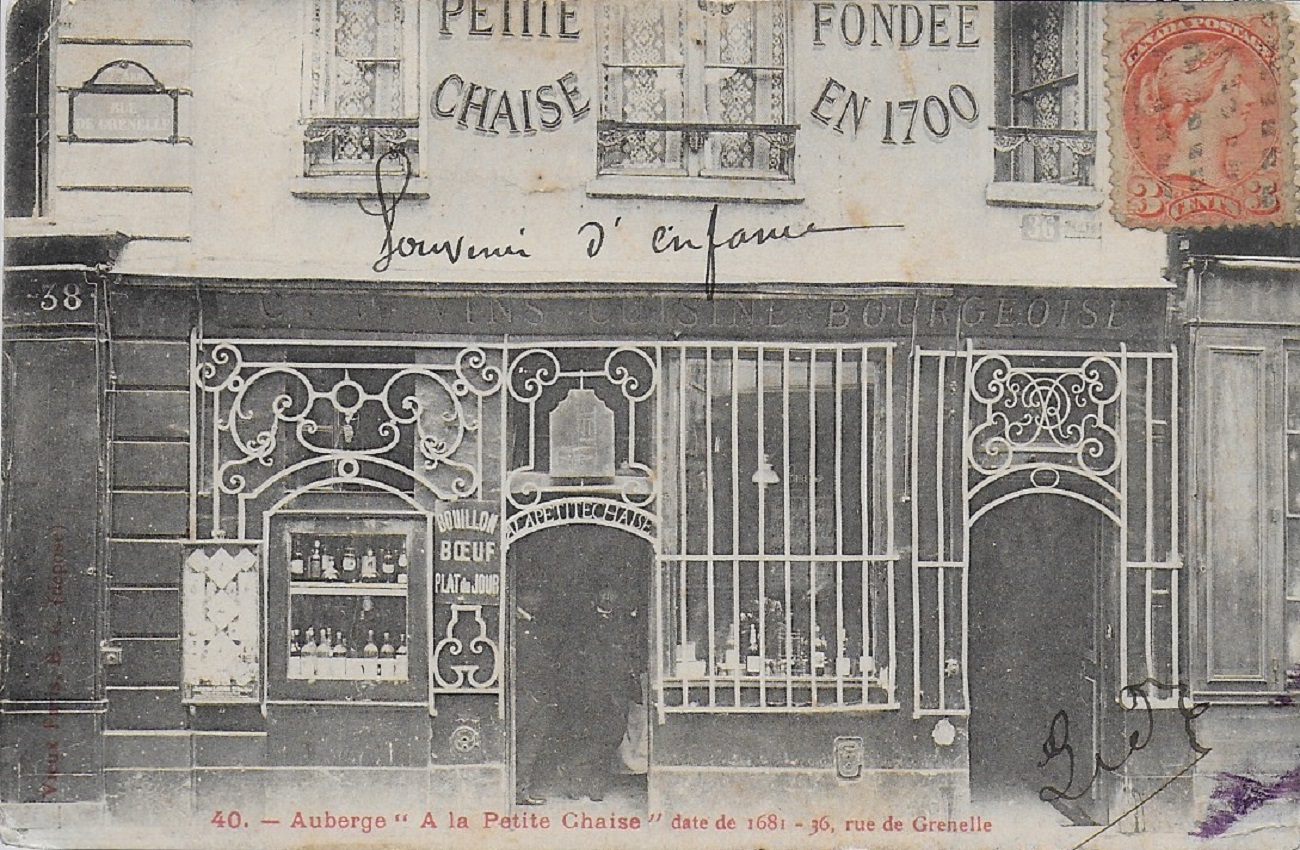 PETITE
CHAISE
FONDÉE
EN 1700
CANADA POSTAGE
3 CENTS 3
RUE
DE GRENELLE
Souvenir d'enfance
36
38
VINS CUISINE BOURGEOISE
A LA PETITE CHAISE
BOUILLON
BŒUF
PLAT du JOUR
Vieux Paris, B. C.
40. — Auberge “ A la Petite Chaise ” date de 1681 - 36, rue de Grenelle